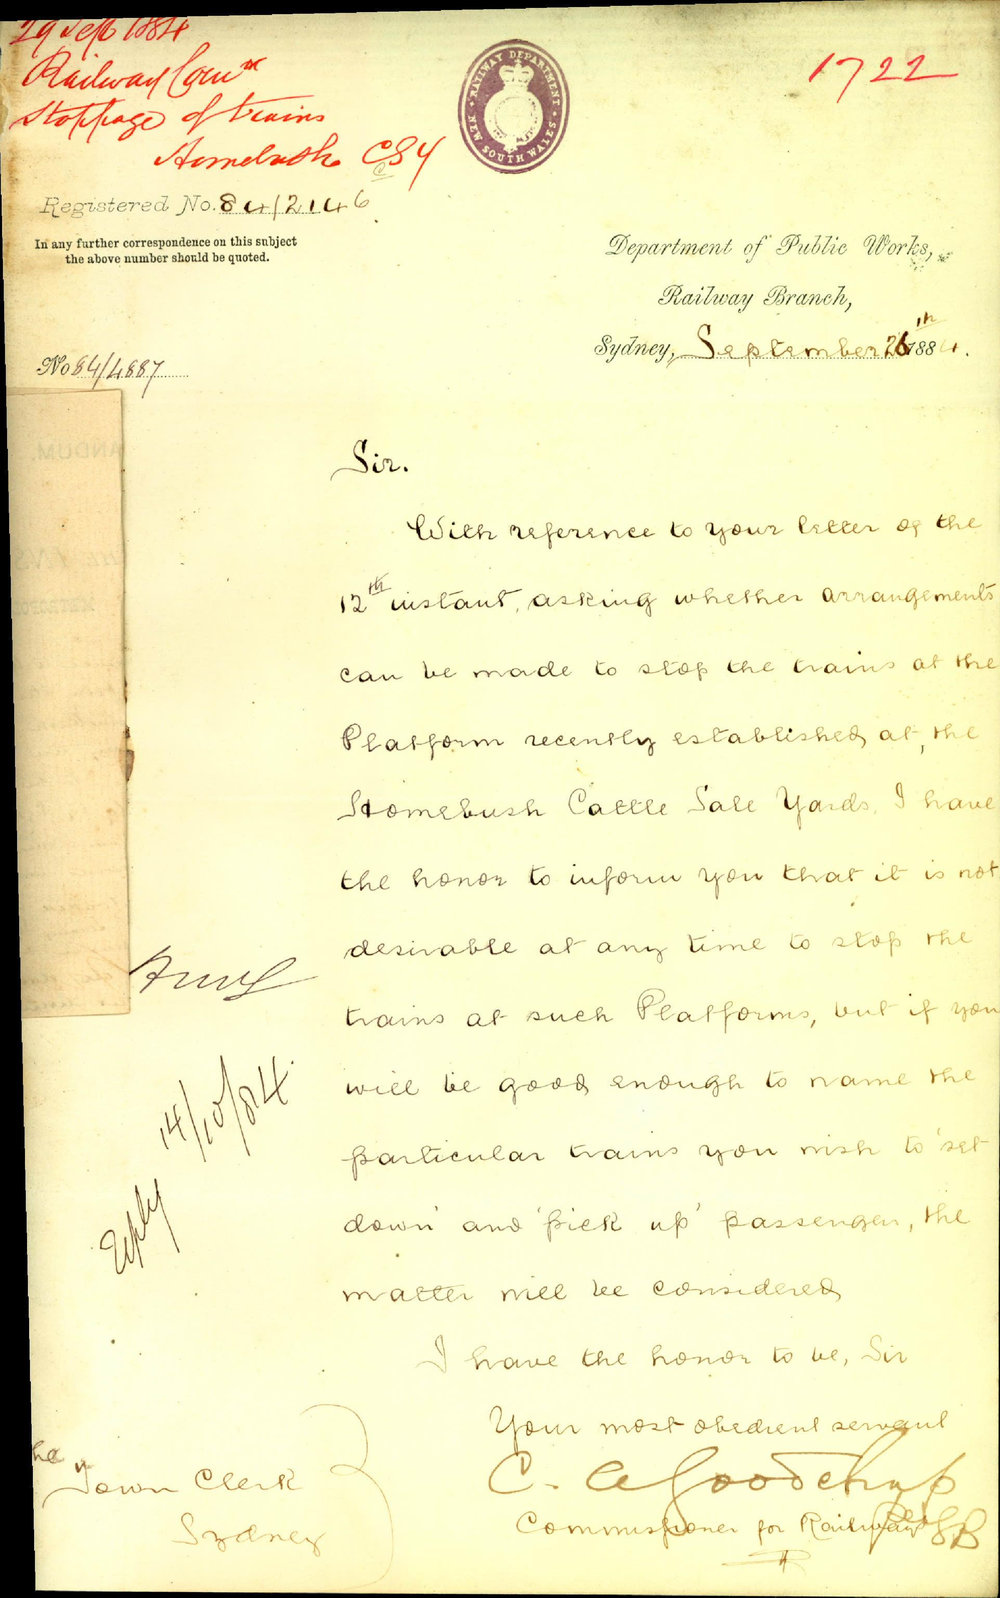 29 Sep 1884
Railway Comr
1722
Stoppage of trains
Homebush CSY
RAILWAY DEPARTMENT
NEW SOUTH WALES
Registered No. 84/2146
In any further correspondence on this subject
the above number should be quoted.
Department of Public Works,
Railway Branch,
Sydney, September 26th 1884.
No 84/4887
ANDUM.
Sir.
With reference to your letter of the
12th instant, asking whether arrangements
can be made to stop the trains at the
Platform recently established at, the
Homebush Cattle Sale Yards, I have
the honor to inform you that it is not
desirable at any time to stop the
trains at such Platforms, but if you
will be good enough to name the
particular trains you wish to 'set
down' and 'pick up' passengers, the
matter will be considered
I have the honor to be, Sir
Your most obedient servant
C. A Goodchap
Commissioner for Railways
Reply
14/10/84.
The
Town Clerk
Sydney